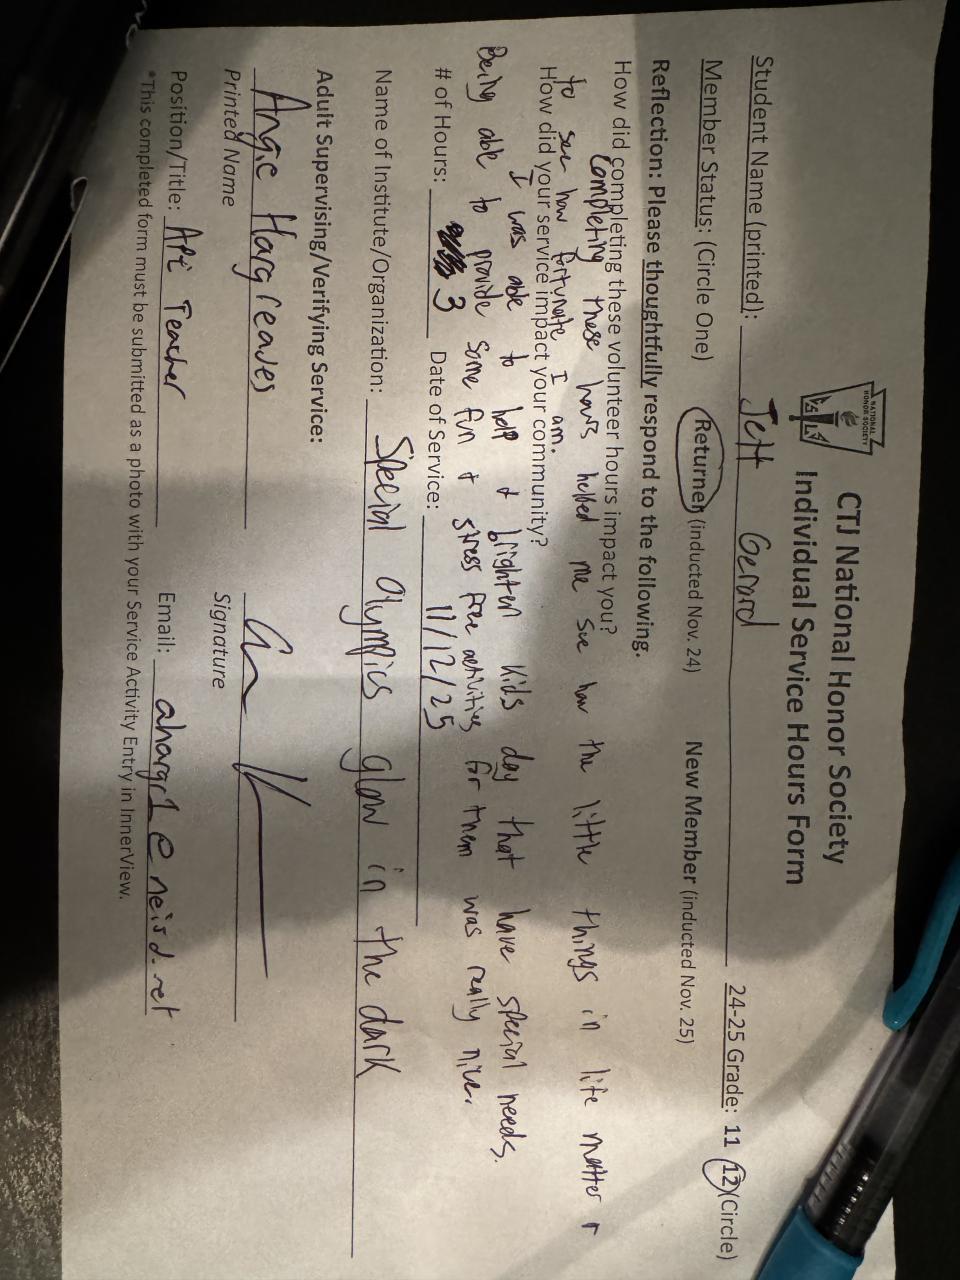 NATIONAL
HONOR SOCIETY
CTJ National Honor Society
Individual Service Hours Form
Student Name (printted): Jett Gerard 24-25 Grade: 11 12 (Circle)
Member Status: (Circle One) Returner (inducted Nov. 24) New Member (inducted Nov. 25)
Reflection: Please thoughtfully respond to the following.
How did completing these volunteer hours impact you?
Completing these hours helped me see how the little things in life matter +
to see how fortunate I am.
How did your service impact your community?
I was able to help + brighten kids day that have special needs.
Being able to provide some fun + stress free activities for them was really nice.
# of Hours: 3 Date of Service: 11/12/25
Name of Institute/Organization: Special Olympics glow in the dark
Adult Supervising/Verifying Service:
Angie Hargreaves
Printed Name Signature
Position/Title: Teacher Email: ahargr1@neisd.net
*This completed form must be submitted as a photo with your Service Activity Entry in InnerView.